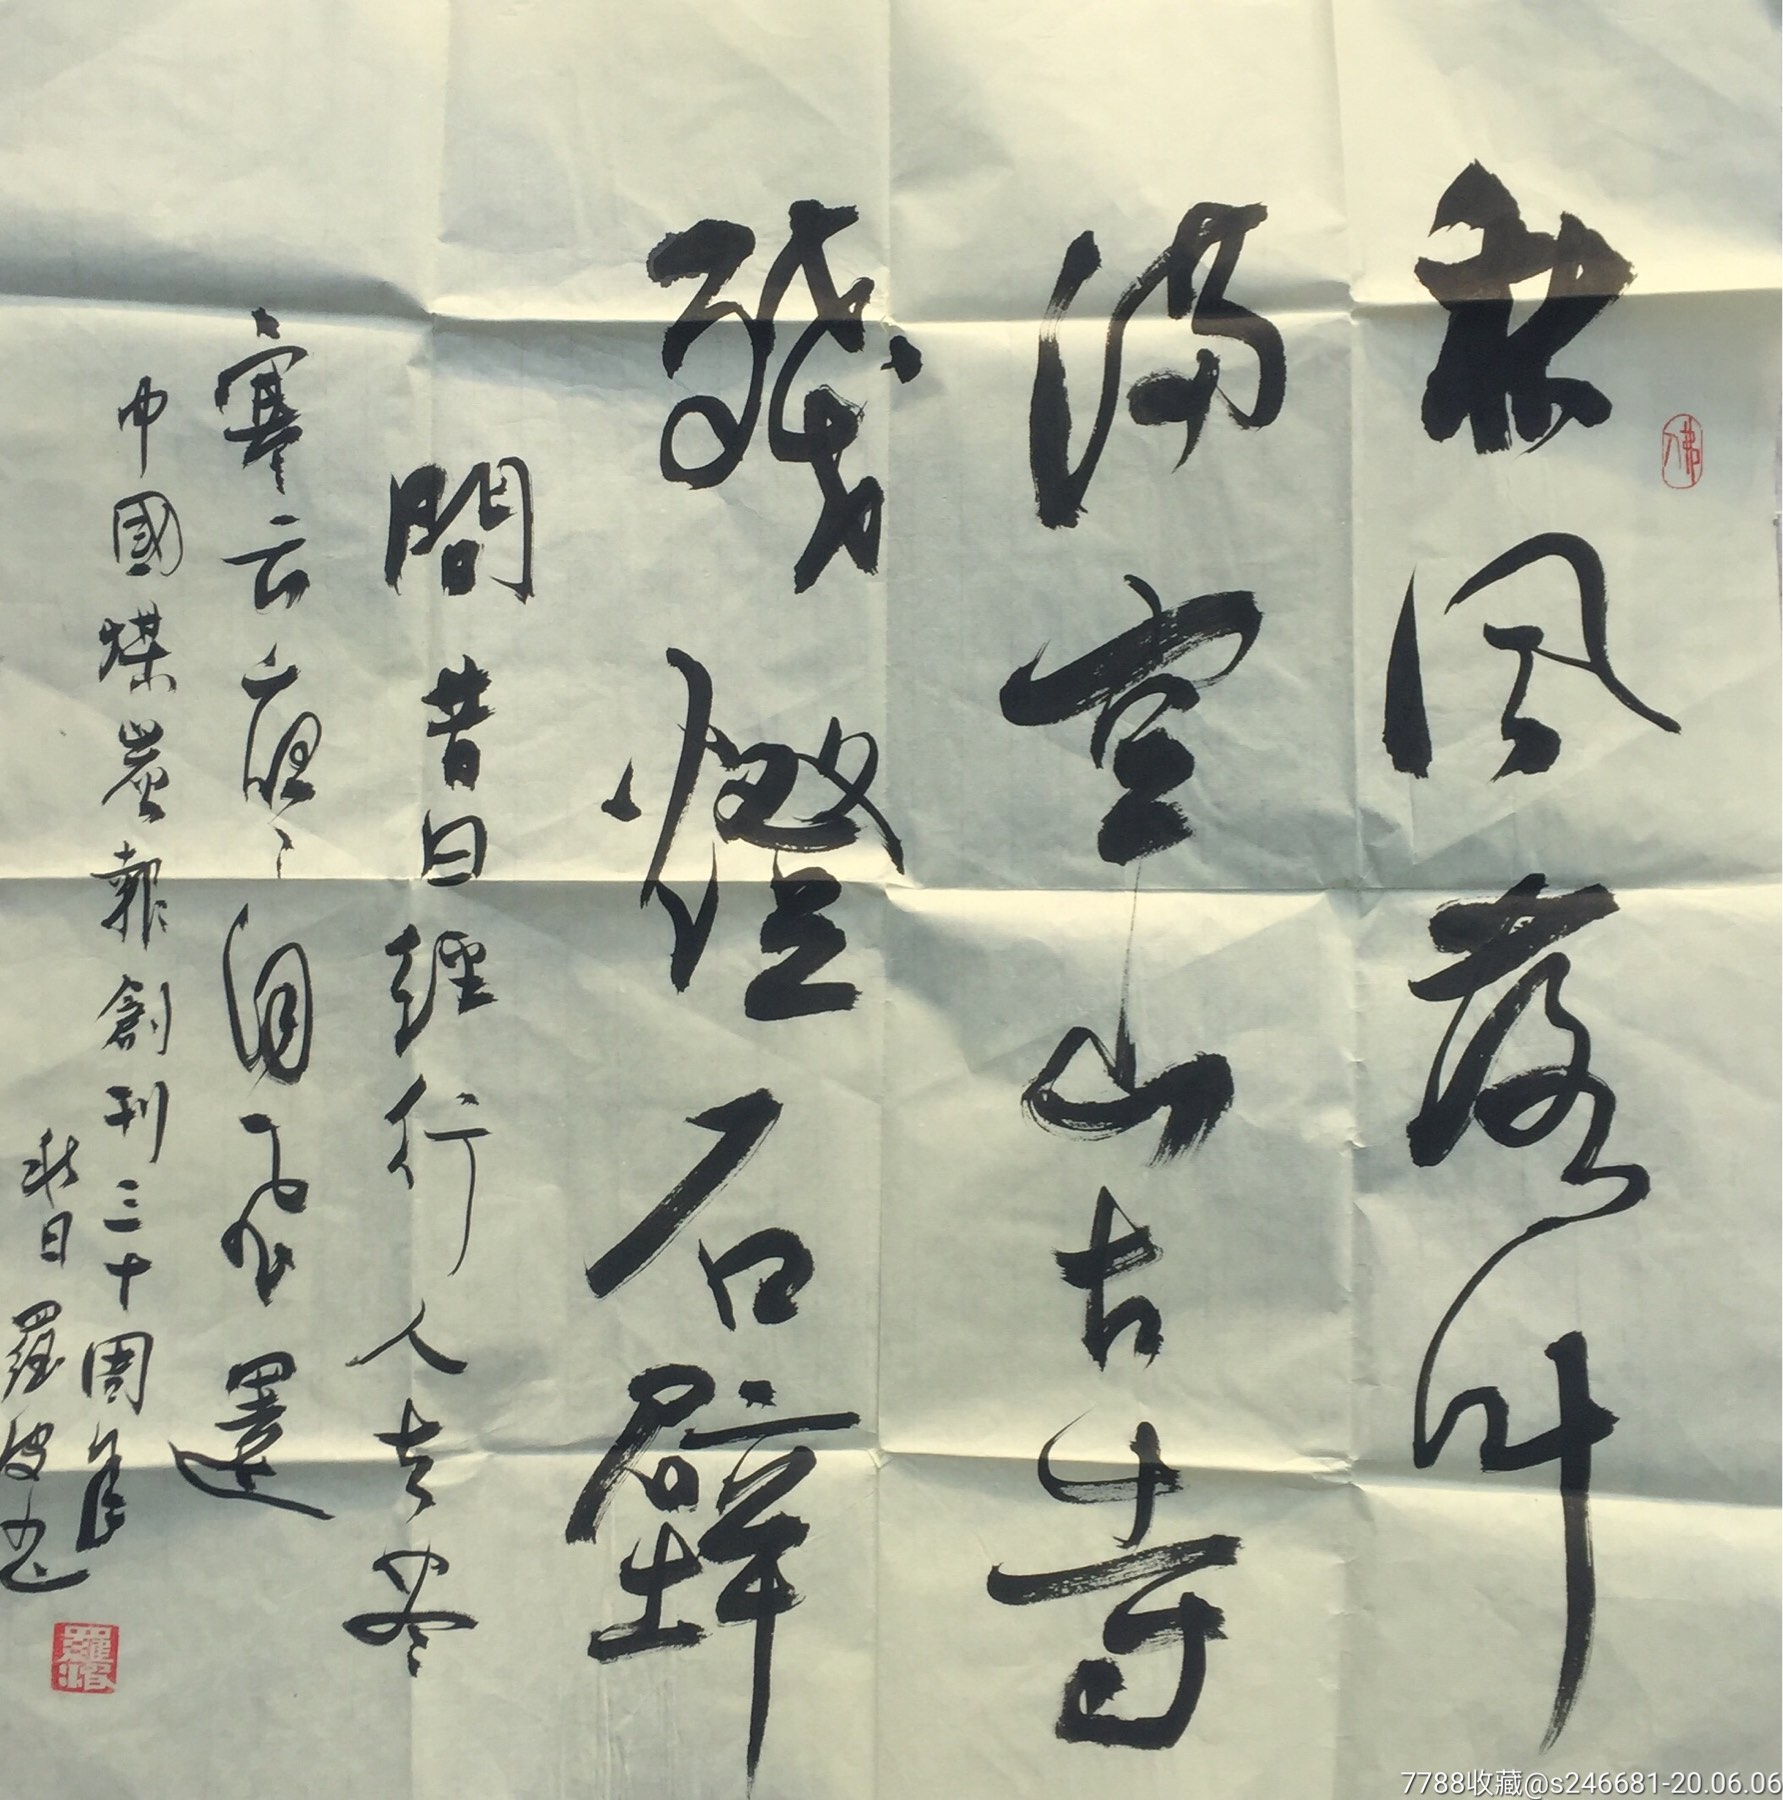 秋风落叶
满空山古寺
殘燈石壁
間昔日經行人去尽
寒云夜〻自飛還
中國煤炭報創刊三十周年
秋日羅波书
佛
7788收藏@s246681-20.06.06